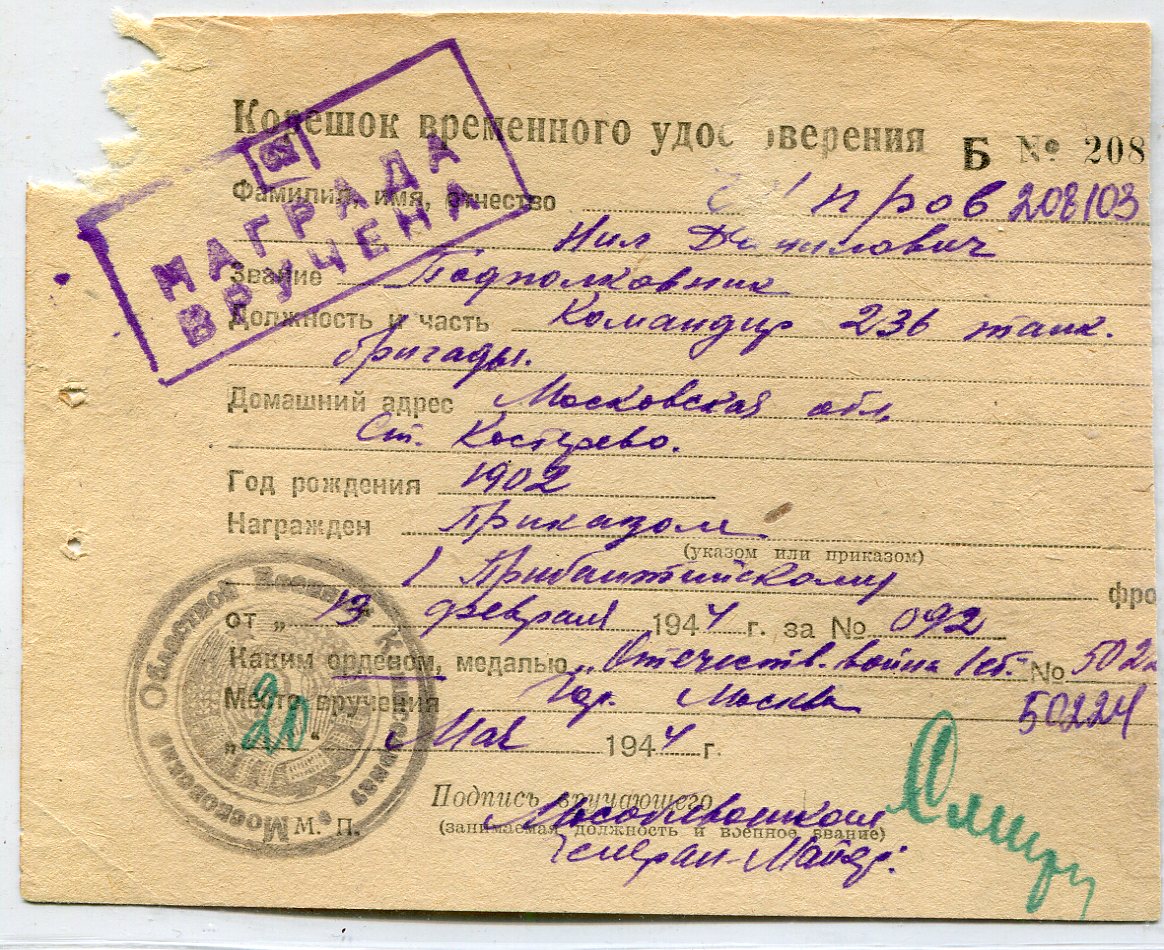 НАГРАДА
ВРУЧЕНА
Корешок временного удос оверения Б № 208
Фамилия, имя, отчество Чупров 208103
Нил Данилович
Звание Подполковник
Должность и часть Командир 236 танк.
бригады.
Домашний адрес Московская обл,
Ст.
Год рождения 1902
Награжден Приказом
(указом или приказом)
1 Прибалтийскому фро
от „ 13 февраля 1944 г. за № 092
Каким орденом, медалью „Отечеств. война 1 ст. № 5022
Место вручения гор. Москва 50224
„ 20 “ Мая 1944 г.
Подпись вручающего
(занимаемая должность и военное звание)
Генерал-Майор.
М. П.
Московский Областной Военный Комиссариат